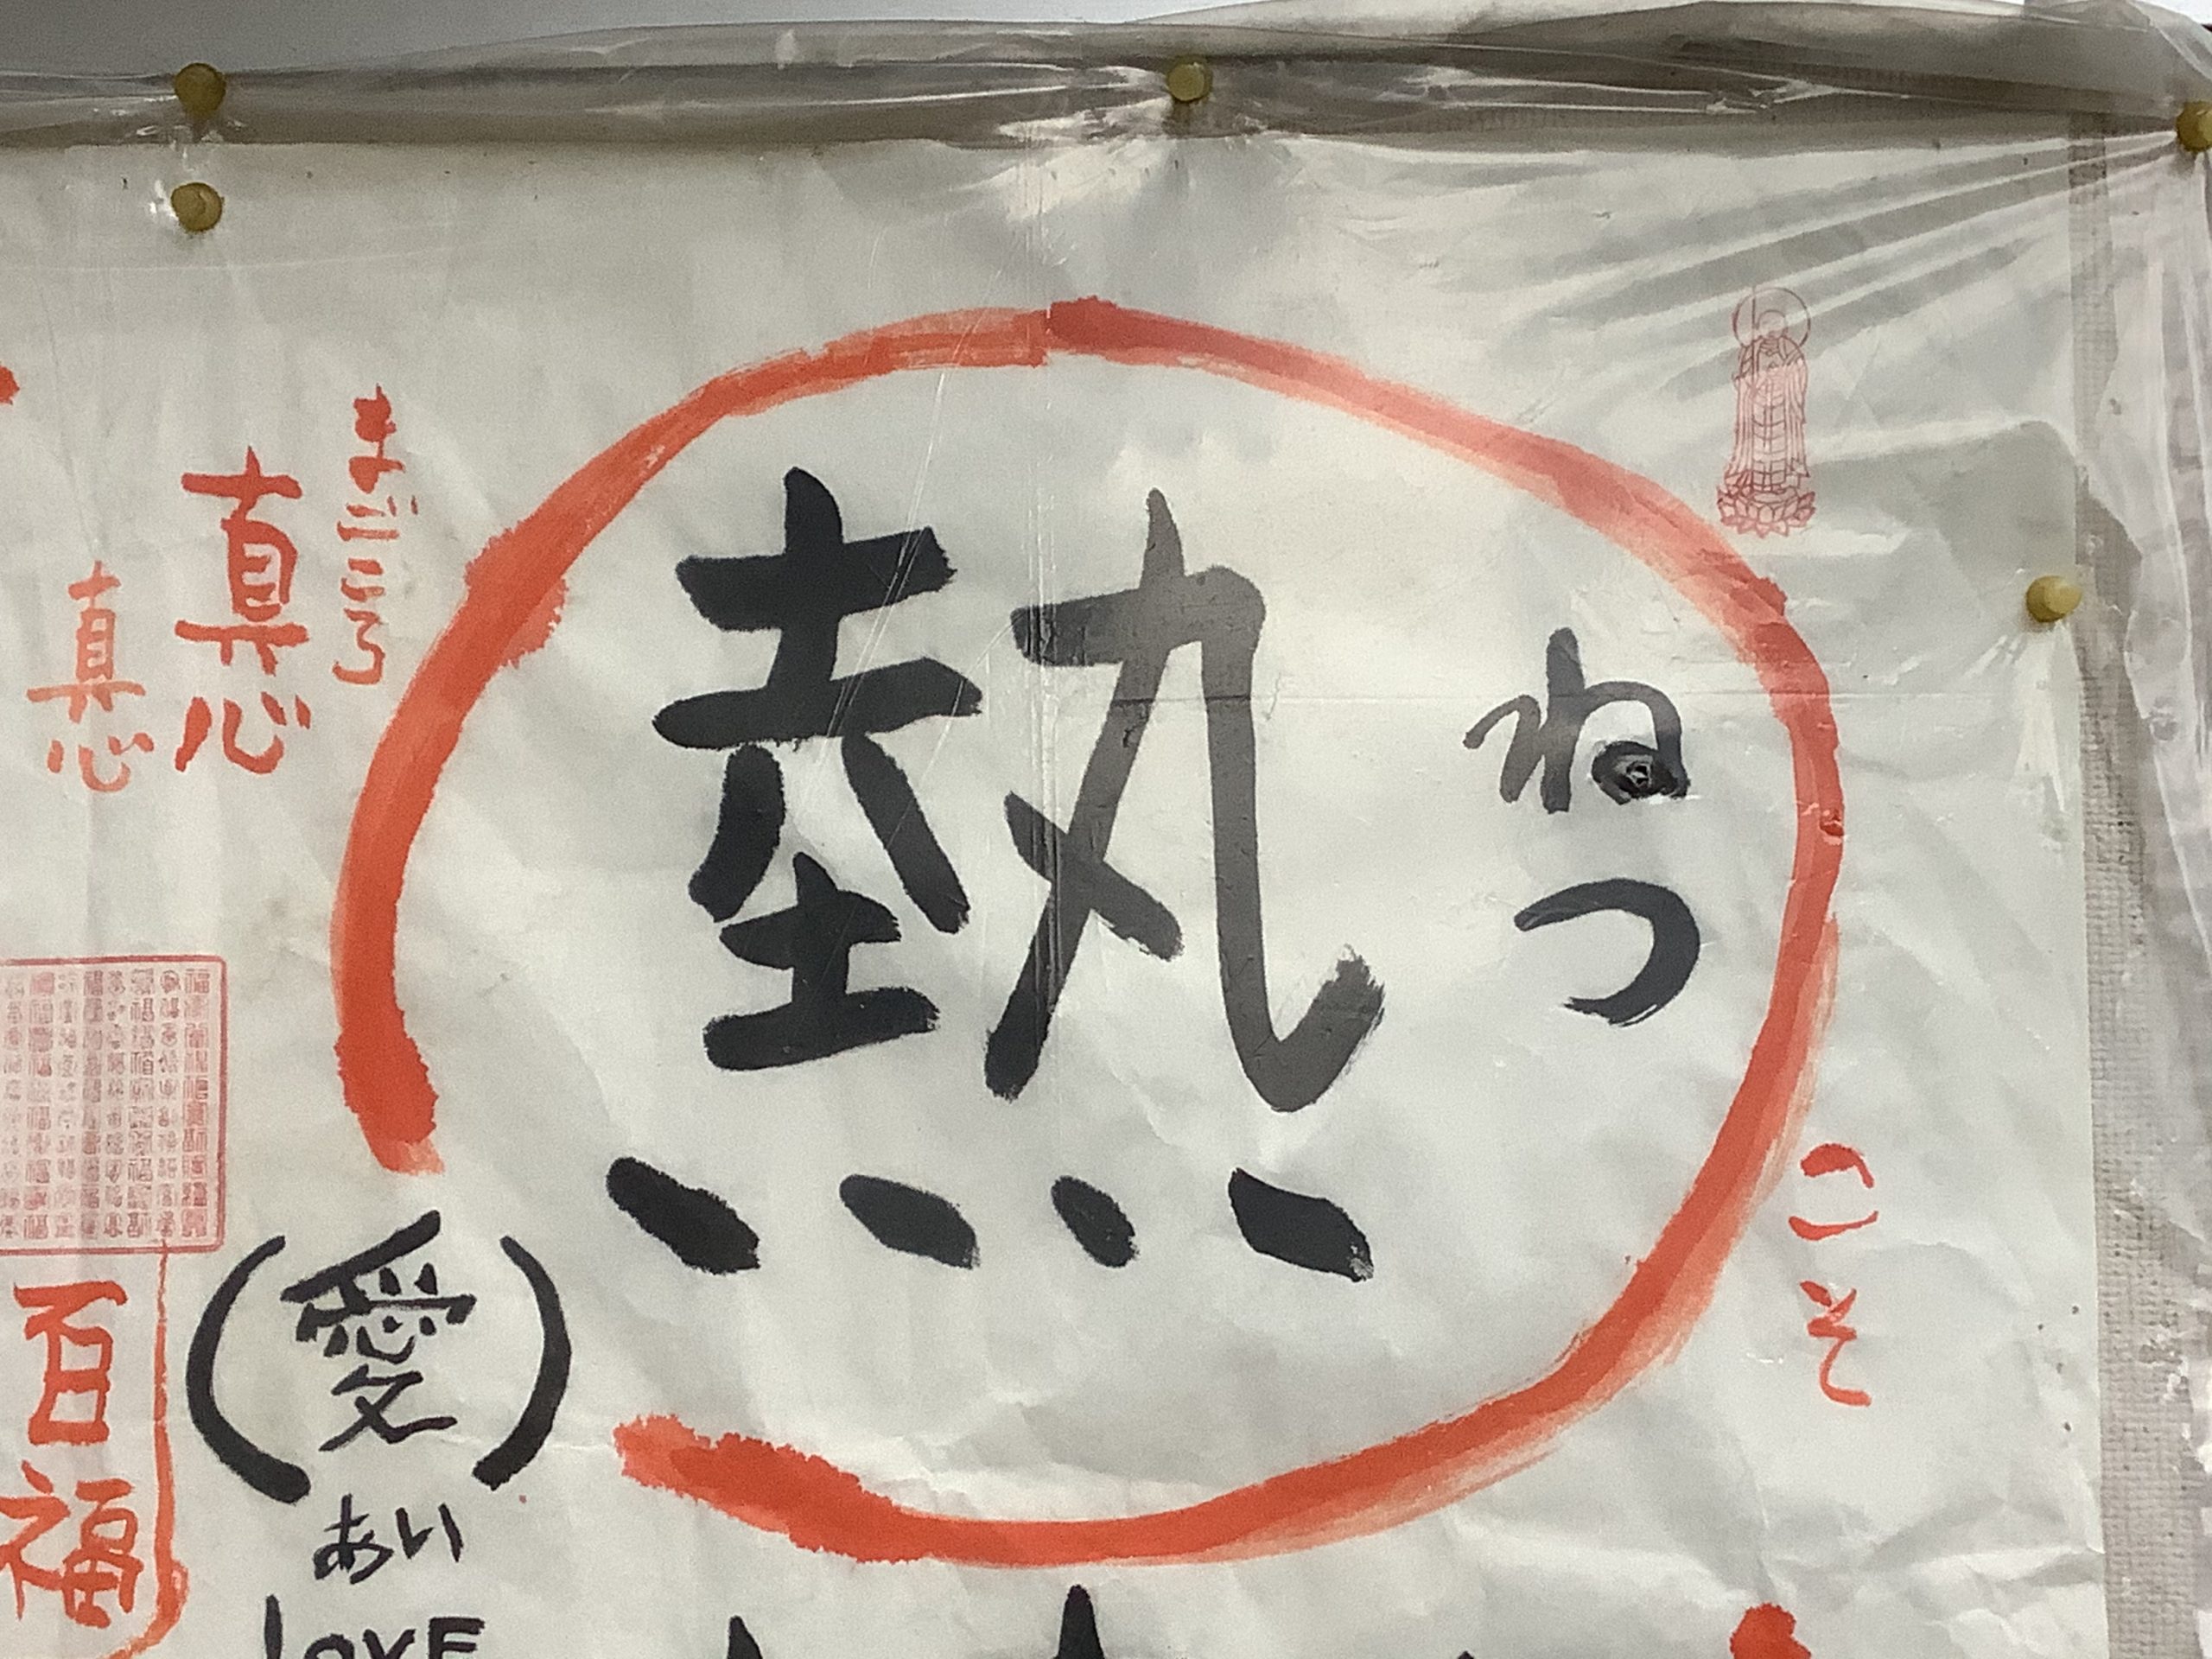 ねつ
熱
こそ
(愛)
あい
LOVE
まごころ
真心
真心
百福